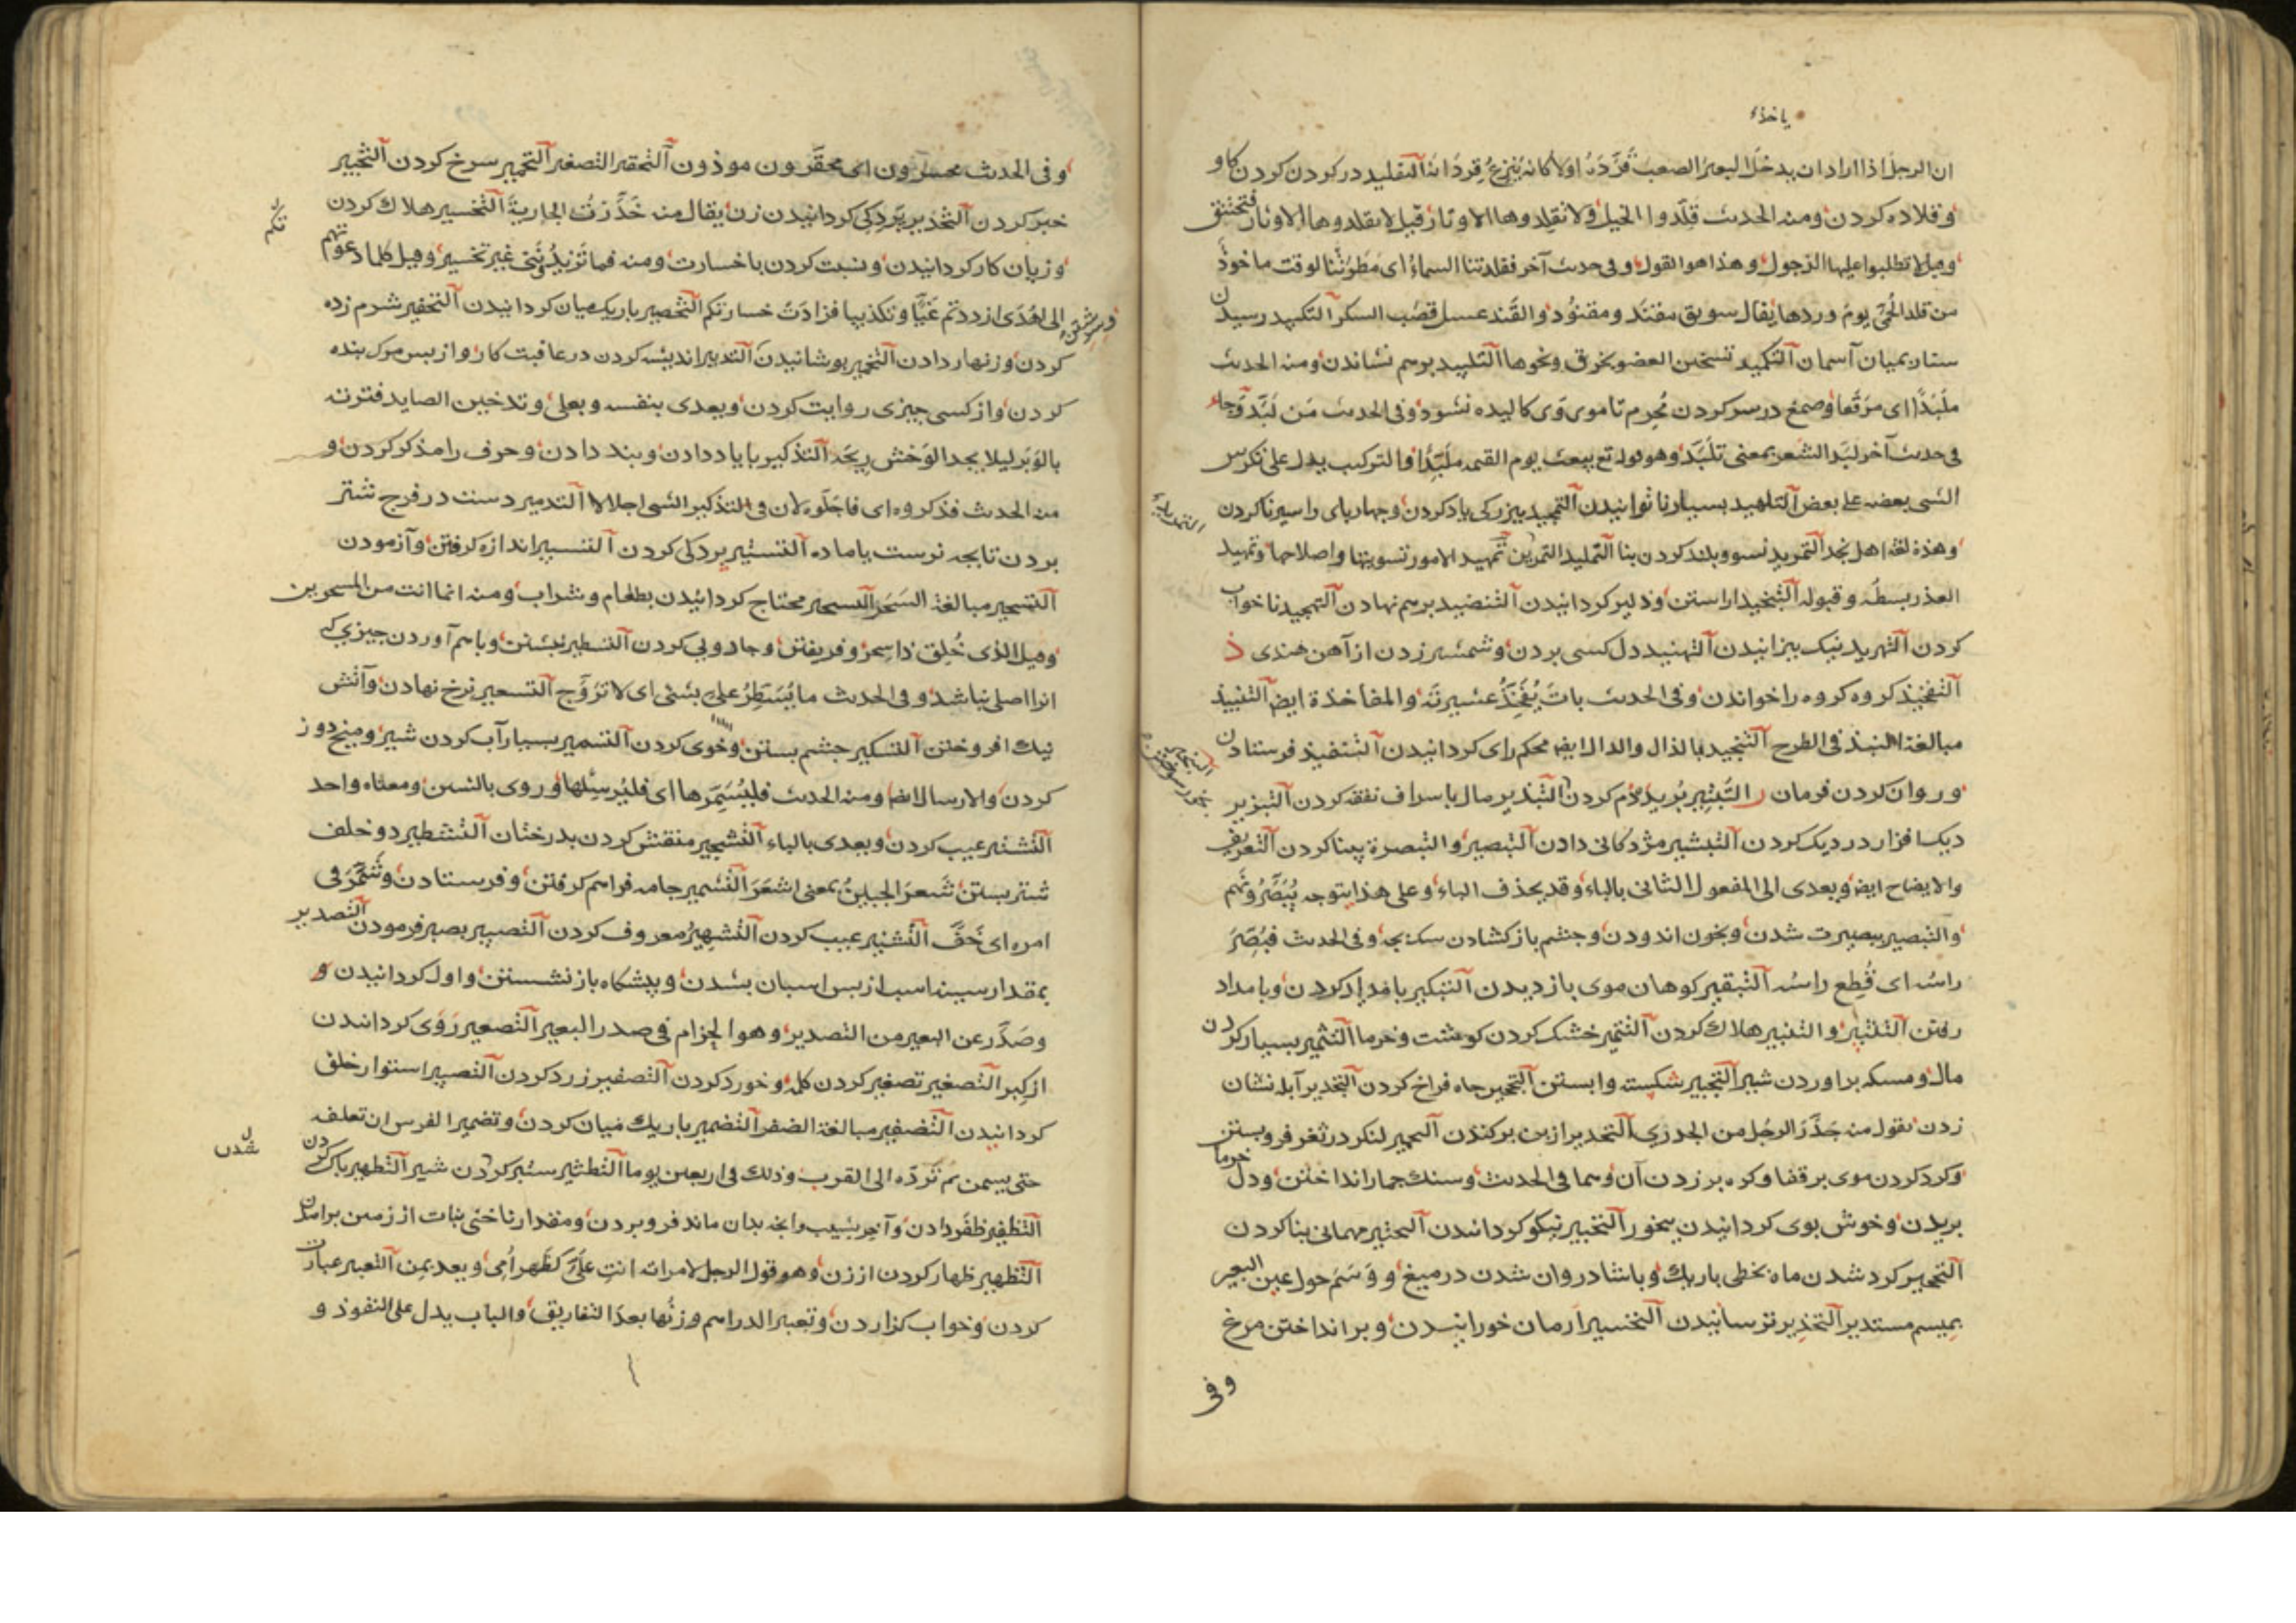 یاخذ
ان الرجل اذا اراد ان یدخل البعیر الصعب قَرَّدَهُ اولا کانه یَنزِعُ قردانه التقلید در کردن کردن کاو
و قلاده کردن ومنه الحدیث قَلِّدوا الخیل ولا تقلدوها الاوتار قیل لا یقلدوها الاوتار فتختنق
وقیل لا تطلبوا علیها الذحول وهذا هو القول وفی حدیث آخر فقلدتنا السماء ای مَطَرَتْنا لوقت ماخوذ
من قلد الحُمّی یوم وردها یقال سویق مقنّد ومقنوُد والقَند عسل قصب السکر التکبید رسیدن
ستاره بمیان آسمان التکمید تسخین العضو بخرق ونحوها التلبید برهم نشاندن ومنه الحدیث
ملَبّدًا ای مرَقّعا وصمغ در سر کردن مُحرِم تا موی وَی کالیده نشود وفی الحدیث مَن لَبَّدَ وجاء
فی حدیث آخر لبَّد الشعر بمعنی تلَبَّد وهو قوله تع یبعث یوم القیمه ملَبّدًا والترکیب یدل علی تکرس
الشی بعضه علی بعض التلهید بسیار ناتوانیدن التمجید ببزرکی یاد کردن وچهارپای را سیر ناکردن
وهذه لغة اهل نجد التمرید نسو وبلند کردن بنا التملید التمرین تمهید الامور تسویتها واصلاحها وتمهید
العذر بسطه وقبوله التنجید آراستن ودلیر کردانیدن التنضید برهم نهادن التهجید ناخواب
کردن التهرید نیک بیزانیدن التهنید دل کسی بردن وشمشیر زدن از آهن هندی ذ
التفخیذ کروه کروه را خواندن وفی الحدیث باتَ یُفَخِّذُ عشیرتَه والمفاخذة ایض التنبیذ
مبالغة النبذ فی الطرح التنجید بالذال والدال ایض محکم رای کردانیدن التنفیذ فرستادن
وروان کردن فرمان ر التبذیر مال باسراف نفقه کردن التبزیر
دیک افزار در دیک کردن التبشیر مژدکانی دادن التبصیر والتبصرة بینا کردن التعریف
والایضاح ایض ویعدی الی المفعول الثانی بالباء وقد یحذف الباء وعلی هذا یتوجه یُبَصَّرُونَهم
والتبصیر ببصیرت شدن وبخون اندودن وچشم باز کشادن سک بچه وفی الحدیث فبُصِّرَ
راسُه ای قُطِع راسُه التبقیر کوهان موی باز دیدن التبکیر بامداد کردن وبامداد
رفتن التتبیر والتثبیر هلاک کردن التتمیر خشک کردن کوشت وخرما التثمیر بسیار کردن
مال ومسکه براوردن شیر التجبیر شکسته وابستن التجحیر چاه فراخ کردن التجدیر آبله نشان
زدن یقول منه جَدَّرَ الرجُل من الجدری التجذیر از بن برکندن التجمیر لشکر در ثغر فرو بستن
وکرد کردن موی بر قفا وکره بر زدن آن وسما فی الحدیث وسنک جمار انداختن ودل خرما
بریدن وخوش بوی کردانیدن ببخور التحبیر نیکو کردانیدن التحتیر مهمانی بنا کردن
التحجیر کرد شدن ماه بخطی باریک وباشادروان شدن در میغ ووَسَم حول عین البعیر
بمیسم مستدیر التحذیر ترسانیدن التحسیر ارمان خورانیدن وبر انداختن مرغ
وفی
وفی الحدیث محسرون ای محقَّرون موذون التحقیر التصغیر التحمیر سرخ کردن التخبیر
خبر کردن التخدیر پردکی کردانیدن زن یقال منه خَدَّرْتُ الجاریةَ التخسیر هلاک کردن
وزیان کار کردانیدن ونسبت کردن با خسارت ومنه فما تزیدُونَنی غیر تخسیر وقیل کلما دعوتهم
الی الهُدَی ازددتم غَیًّا وتکذیبا فزادَتْ خسارتکم التخصیر باریک میان کردانیدن التخفیر شرم زده
کردن وزنهار دادن التخمیر پوشانیدن التدبیر اندیشه کردن در عاقبت کار واز پس مرک بنده
کردن واز کسی چیزی روایت کردن ویعدی بنفسه وبعلی وتدخین الصاید فترته
بالوَبر لیلا یجد الوَحْش ریحَه التذکیر با یاد دادن وپند دادن وحرف را مذکر کردن و
منه الحدیث فذکروه ای فاجِلّوه لان فی التذکیر الشی اجلالا التدمیر دست در فرج شتر
بردن تا بچه نرست یا ماده التستیر پردکی کردن التسبیر اندازه کرفتن وآزمودن
التسحیر مبالغة السَحَر التسحیر محتاج کردانیدن بطعام وشراب ومنه انما انت من المسحرین
وقیل الذی خُلِق ذا سِحر وفریفتن وجادویی کردن التسطیر نبشتن وباهم آوردن چیزی که
انرا اصلی نباشد وفی الحدیث ما یُسَطِّرُ علیّ بشی ای لا تُرَوَّج التسعیر نرخ نهادن وآتش
نیک افروختن التسکیر چشم بستن وخوی کردن التسمیر بسیار آب کردن شیر ومیخ دوز
کردن والارسال ایض ومنه الحدیث فلیُسَمِّرها ای فلیُرسِلها وروی بالشین ومعناه واحد
التشتیر عیب کردن ویعدی بالباء التشجیر منقش کردن بدرختان التشطیر دو خلف
شتر بستن شَعرَ الجنینُ بمعنی اشعَرَ التشمیر جامه فراهم کرفتن وفرستادن وشَمَّرَ فی
امره ای خَفَّ التشنیر عیب کردن التشهیر معروف کردن التصبیر بصبر فرمودن التصدیر
بمقدار سینه اسب از پس اسبان بشدن وبپیشکاه باز نشستن واول کردانیدن و
وصَدَّر عن البعیر من التصدیر وهو الحِزام فی صدر البعیر التصعیر رَوَی کردانیدن
از کِبر التصغیر تصغیر کردن کلمه وخورد کردن التصفیر زرد کردن التصبیر استوار خلق
کردانیدن التضفیر مبالغة الضفر التضمیر باریک میان کردن وتضمیر الفرس ان تعلف
حتی یسمن ثم تَرُدّه الی القرب وذلک فی اربعین یوما التطثیر ستبر کردن شیر التطهیر پاک کردن
التظفیر ظفر دادن وآخر بشیب وانچه بدان ماند فرو بردن ومقدار ناخنی نبات از زمین برامدن
التظهیر ظهار کردن از زن وهو قول الرجل لامراته انتِ علَیَّ کظَهر اُمی ویعد بمن التعبیر عبارت
کردن وخواب کزاردن وتعبیر الدراهم وزنُها بعدَ التفاریق والباب یدل علی النفوذ و
شدن